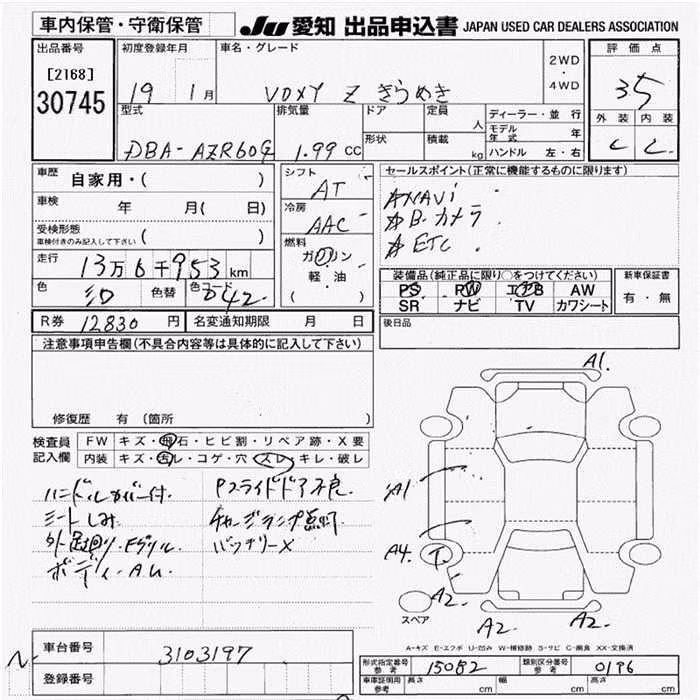 車内保管・守衛保管
JU 愛知 出品申込書 JAPAN USED CAR DEALERS ASSOCIATION
出品番号
[2168]
30745
初度登録年月
19 1月
車名・グレード
VOXY Z きらめき
2WD
・
4WD
評価点
35
外装 内装
C C
型式
DBA-AZR60G
排気量
1.99 cc
ドア
形状
定員 人
積載 kg
ディーラー・並行
モデル年式 年
ハンドル 左・右
車歴 自家用・( )
車検 年 月( 日)
受検形態
車検付きのみ記入して下さい ( )
走行 13万6千953km
色 色替 色コード 042
シフト
AT
冷房
AAC
燃料
ガソリン
軽・油
( )
セールスポイント(正常に機能するものに限ります)
ANAVi
B.カメラ
ETC
装備品(純正品に限り○をつけてください)
PS PW エアB AW
SR ナビ TV カワシート
新車保証書
有・無
R券 12830円 名変通知期限 月 日
後日品
注意事項申告欄(不具合内容等は具体的に記入して下さい)
修復歴 有(箇所 )
検査員
記入欄
FW キズ・飛石・ヒビ割・リペア跡・X要
内装 キズ・汚レ・コゲ・穴・スレ・キレ・破レ
ハンドルカバー付.
シートしみ
外足廻り.Fグリル
ボディ.A.U.
Pスライドドア不良
チャージランプ点灯
バッテリーX
A1.
A1
A4. T.
A2.
A2. A2.
スペア
A-キズ E-エクボ U-凹み W-補修跡 S-サビ C-腐食 XX-交換済
車台番号 3103197
登録番号
形式指定番号 参考 15082
類別区分番号 参考 0196
車庫証明用 参考 長さ cm 幅 cm 高さ cm